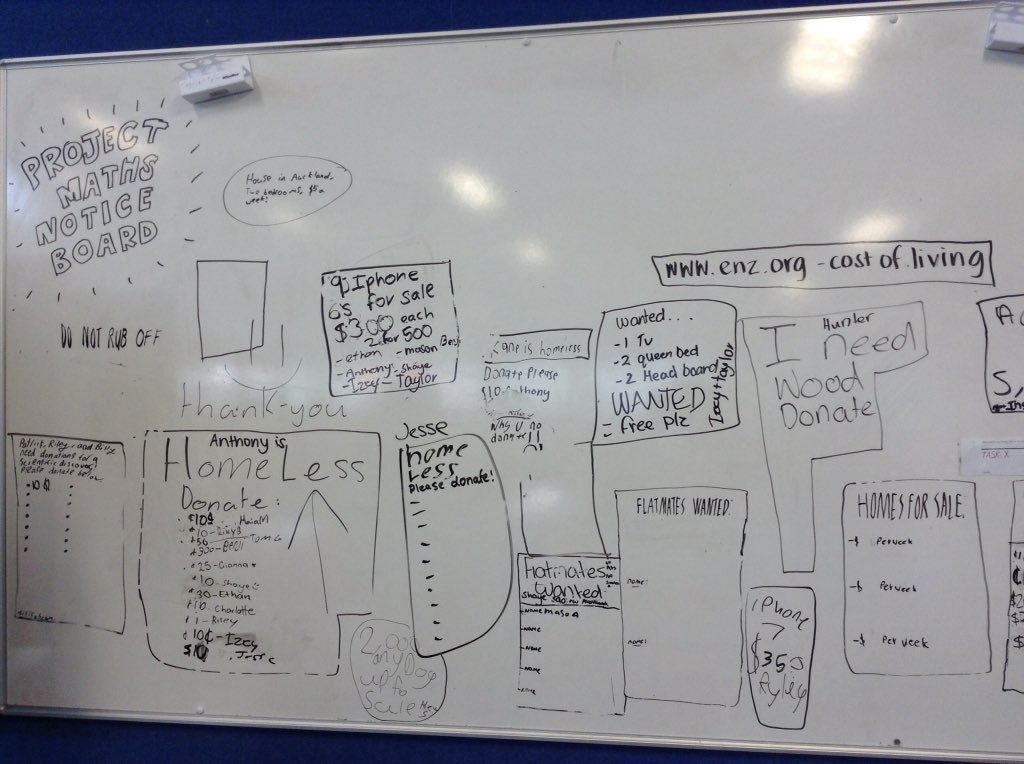 PROJECT
MATHS
NOTICE
BOARD
DO NOT RUB OFF
House in Auckland,
Two bedrooms, $50
week!
thank-you
Iphone
6s for sale
$300 each
2 for 500
-ethan -mason
-Anthony -shaye
-Izzy -Taylor
www.enz.org -cost of living
Kane is homeless
Donate Please
$10-Anthony
wanted...
-1 Tv
-2 queen bed
-2 Head board
WANTED
free plz
Izzy+Taylor
Hunter
I need
Wood
Donate
TASK X
Patrick, Riley, and Billy
need donations for a
Scientific discovery
Please donate below
Anthony is
HomeLess
Donate:
$10-
300-
$25-Cianna
$10-Shaye
$30-Ethan
$10. Charlotte
$1-Riley
10¢-Izzy
Jesse
Jesse
home
Less
Please donate!
any Dog
up for
Flatmates
Wanted
-NAME mason
-NAME
-NAME
-NAME
-NAME
FLATMATES WANTED:
name:
name:
iPhone
7
$350
Ryley
HOMES FOR SALE.
-$ Per week
-$ Per week
-$ Per week